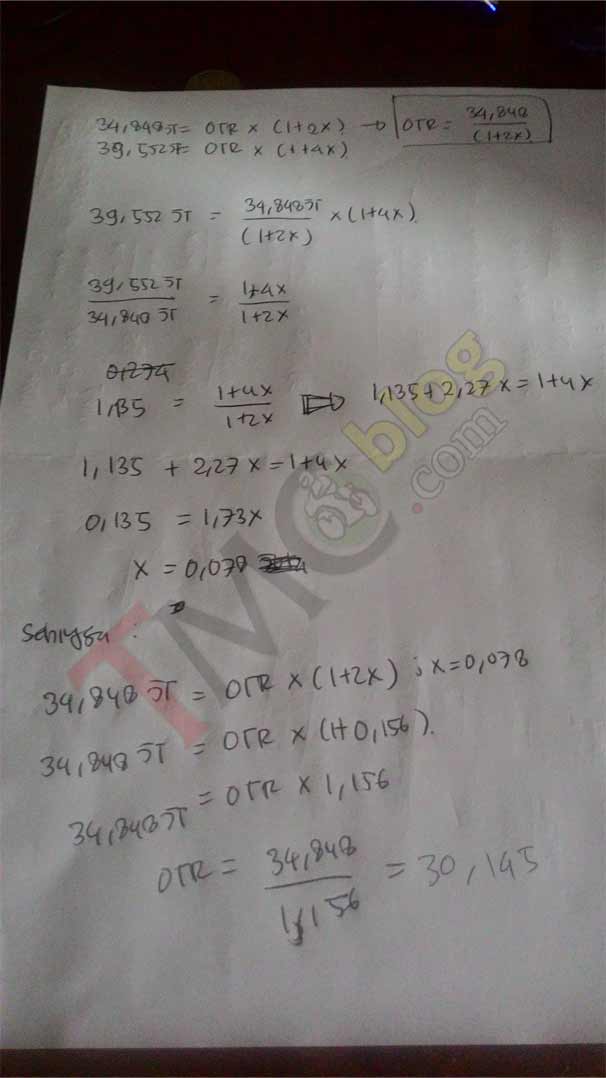 34,848 JT = OTR x (1+2x) → OTR = 34,848 / (1+2x)
39,552 JT = OTR x (1+4x)
39,552 JT = 34,848 JT / (1+2x) x (1+4x)
39,552 JT / 34,848 JT = 1+4x / 1+2x
0,274
1,135 = 1+4x / 1+2x ⇒ 1,135 + 2,27x = 1+4x
1,135 + 2,27x = 1+4x
0,135 = 1,73x
x = 0,078
Sehingga :
34,848 JT = OTR x (1+2x) ; x = 0,078
34,848 JT = OTR x (1+0,156).
34,848 JT = OTR x 1,156
OTR = 34,848 / 1,156 = 30,145
TMCblog.com